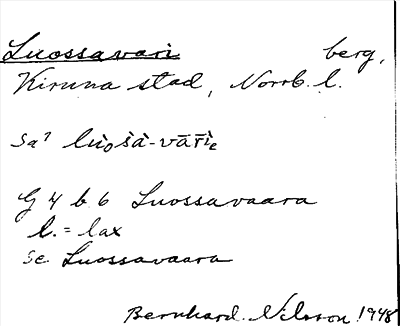 Luossavari berg,
Kiruna stad, Norrb. l.
Sa? luòsà-vārìe
G 4 b 6 Luossavaara
l. = lax
se Luossavaara
Bernhard Nilsson 1948